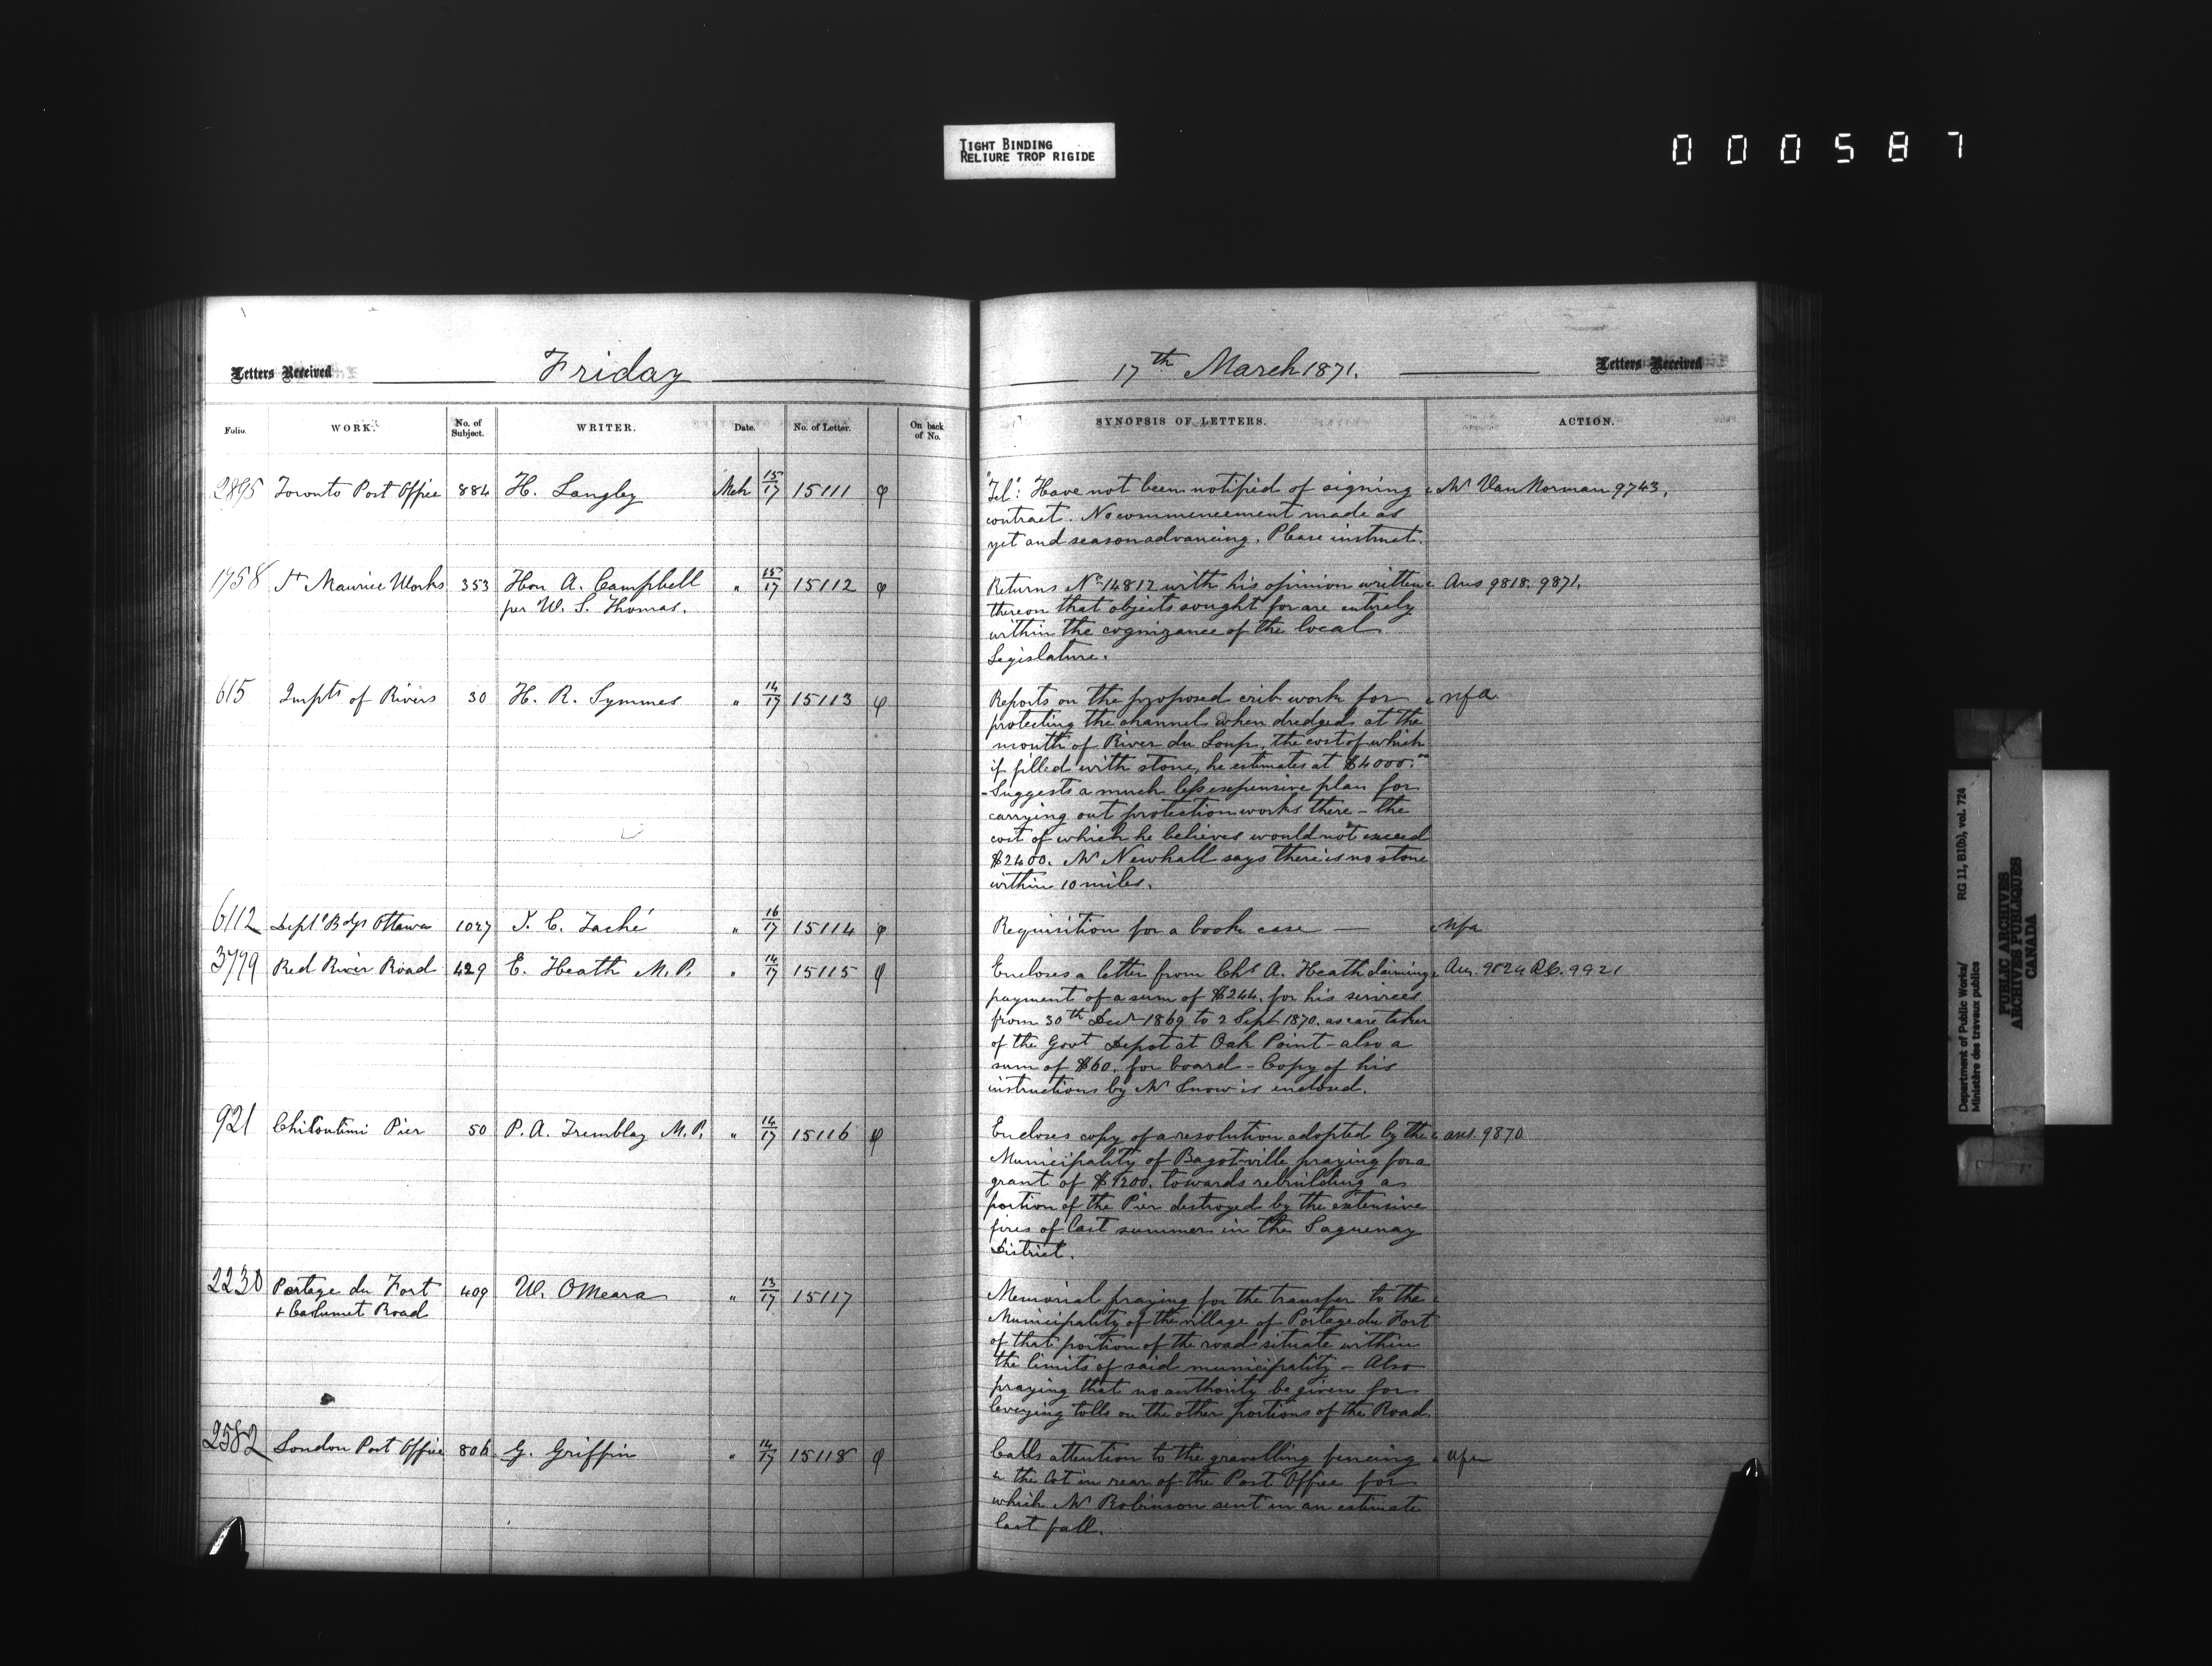 TIGHT BINDING
RELIURE TROP RIGIDE
000587
Letters Received Friday
17th March 1871. Letters Received
Folio. WORK. No. of Subject. WRITER. Date. No. of Letter. On back of No.
SYNOPSIS OF LETTERS. ACTION.
2895 Toronto Post Office 884 H. Langley Mch 15/17 15111 φ
"Tel": Have not been notified of signing Mr Van Norman 9743,
contract. No commencement made as
yet and season advancing. Please instruct.
1758 St Maurice Works 353 Hon A. Campbell " 15/17 15112 φ
per W. S. Thomas.
Returns No 14812 with his opinion written Ans 9818. 9871.
thereon that objects sought for are entirely
within the cognizance of the local
Legislature.
615 Impts of Rivers 30 H. R. Symmes " 14/17 15113 φ
Reports on the proposed crib work for nfa
protecting the channel when dredged at the
mouth of River du Loup, the cost of which
if filled with stone, he estimates at $4000.00
- Suggests a much less expensive plan for
carrying out protection works there - the
cost of which he believes would not exceed
$2400. Mr Newhall says there is no stone
within 10 miles.
6112 Deptl Bdgs Ottawa 1027 J. C. Taché " 16/17 15114 φ
Requisition for a book case — nfa
3779 Red River Road 429 E. Heath M.P. " 14/17 15115 φ
Encloses a letter from Chs A. Heath claiming Ans. 9824 R.C. 9921
payment of a sum of $244. for his services
from 30th Decr 1869 to 2 Sept 1870. as care taker
of the Govt Depot at Oak Point - also a
sum of $60. for board - Copy of his
instructions by Mr Snow is enclosed.
921 Chicoutimi Pier 50 P. A. Tremblay M.P. " 14/17 15116 φ
Encloses copy of a resolution adopted by the ans. 9870
Municipality of Bagotville praying for a
grant of $9200. towards rebuilding a
portion of the Pier destroyed by the extensive
fires of last summer in the Saguenay
District.
2230 Portage du Fort 409 W. OMeara " 13/17 15117
+ Calumet Road
Memorial praying for the transfer to the
Municipality of the village of Portage du Fort
of that portion of the road situate within
the limits of said municipality - Also
praying that no authority be given for
levying tolls on the other portions of the Road.
2582 London Post Office 806 G. Griffin " 14/17 15118 φ
Calls attention to the gravelling fencing nfa
&c the lot in rear of the Post Office for
which Mr Robinson sent in an estimate
last fall.
Department of Public Works/ RG 11, B1(b), vol. 724
Ministère des travaux publics
PUBLIC ARCHIVES
ARCHIVES PUBLIQUES
CANADA